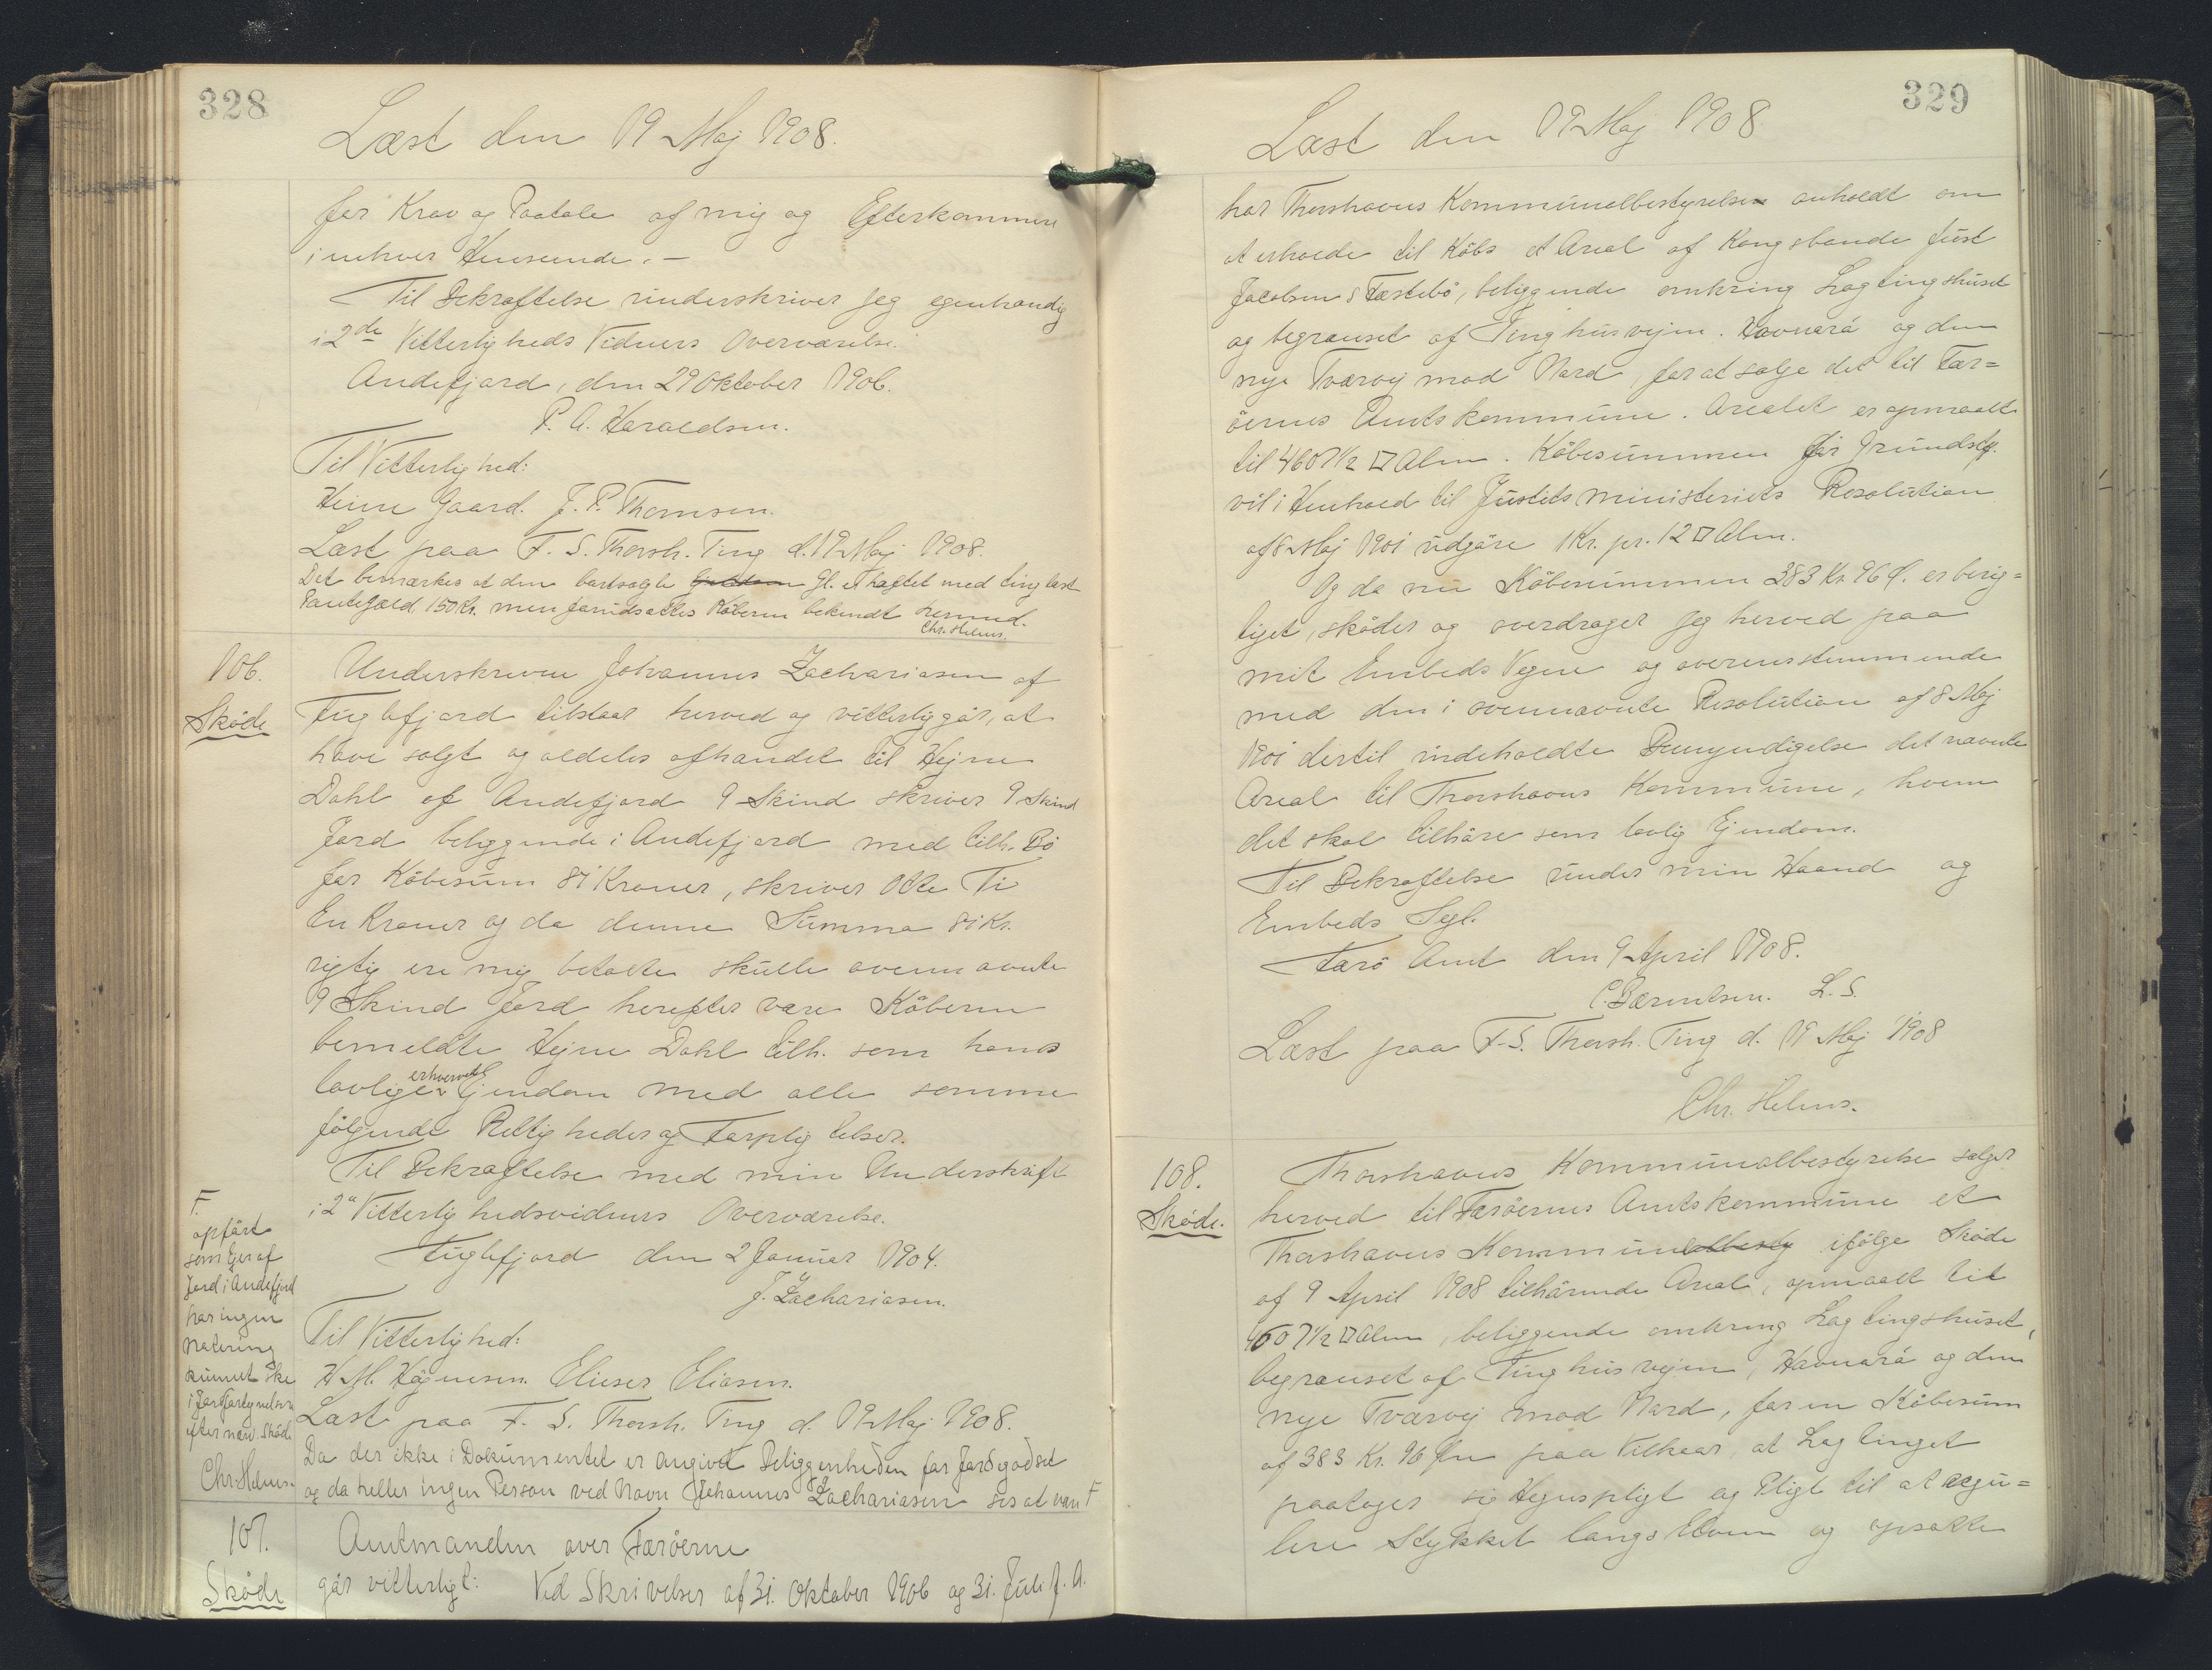 328
Læst den 19 Maj 1908.
for Krav og Paatale af mig og Efterkommere
i enhver Henseende. —
Til Bekræftelse underskriver jeg egenhændig
i 2de Vitterligheds Vidners Overværelse.
Andefjord, den 29 Oktober 1906.
P. A. Haraldsen.
Til Vitterlighed:
Heine Gaard. J. P. Thomsen.
Læst paa F. S. Thorsh. Ting d. 19 Maj 1908.
Det bemærkes at den bortsolgte Gl. M hæftet med tinglæst
Pantegæld 150 Kr. men forudsættes Køberen bekendt hermed.
Chr. Helms.
106.
Skøde
Underskreven Johannes Zachariasen af
Fuglefjord tilstaar herved og vitterliggør, at
have solgt og aldeles afhændet til Hejne
Dahl af Andefjord 9 Skind skriver 9 Skind
Jord beliggende i Andefjord med tilh. Bø
for Købesum 81 Kroner, skriver Otte Ti
En Kroner og da denne Summa 81 Kr.
rigtig ere mig betalte skulle ovennævnte
9 Skind Jord herefter være Køberen
bemeldte Hejne Dahl tilh. som hans
lovlige erhvervede Ejendom med alle samme
følgende Rettigheder og Forpligtelser.
Til Bekræftelse med min Underskrift
i 2a Vitterlighedsvidners Overværelse.
Fuglefjord den 2 Januar 1904.
J. Zachariasen.
Til Vitterlighed:
H. M. Højnesen. Elieser Eliasen.
Læst paa F. S. Thorsh. Ting d. 19 Maj 1908.
Da der ikke i Dokumentet er angivet Beliggenheden for Jordegodset
og da heller ingen Person ved Navn Johannes Zachariasen ses at være F
F.
opført
som Ejer af
Jord i Andefjord
har ingen
Notering
kunnet ske
i
efter næv. Skøde
Chr. Helms.
107.
Skøde
Amtmanden over Færøerne
gør vitterligt: Ved Skrivelser af 31. Oktober 1906 og 31. Juli f. A.
329
Læst den 19 Maj 1908
har Thorshavns Kommunalbestyrelse anholdt om
at erholde til Købs et Areal af Kongsbonde Just
Jacobsens Fæstebø, beliggende omkring Lagtingshuset
og begrænset af Tinghusvejen. Havnará og den
nye Tværvej mod Nord, for at sælge det til Fær=
øernes Amtskommune. Arealet er opmaalt
til 4607½ □ Alen. Købesummen for Grundstk.
vil i Henhold til Justitsministeriets Resolution
af 8 Maj 1901 udgøre 1 Kr. pr. 12 □ Alen.
Og da nu Købesummen 383 Kr. 96 Ø. er berig=
tiget, skøder og overdrager jeg herved paa
mit Embeds Vegne og overensstemmende
med den i ovennævnte Resolution af 8 Maj
1901 dertil indeholdte Bemyndigelse det nævnte
Areal til Thorshavns Kommune, hvem
det skal tilhøre som lovlig Ejendom.
Til Bekræftelse under min Haand og
Embeds Segl.
Færø Amt den 9 April 1908.
C. Bærentsen. L. S.
Læst paa F. S. Thorsh. Ting d. 19 Maj 1908
Chr. Helms.
108.
Skøde.
Thorshavns Kommunalbestyrelse sælger
herved til Færøernes Amtskommune et
Thorshavns Kommunalbesty ifølge Skøde
af 9 April 1908 tilhørende Areal, opmaalt til
4607½ □ Alen, beliggende omkring Lagtingshuset,
begrænset af Tinghusvejen, Havnará og den
nye Tværvej mod Nord, for en Købesum
af 383 Kr. 96 Øre paa Vilkaar, at Lagtinget
paatager sig Hegnspligt og Pligt til at regu=
lere Stykket langs Elven og opsætte